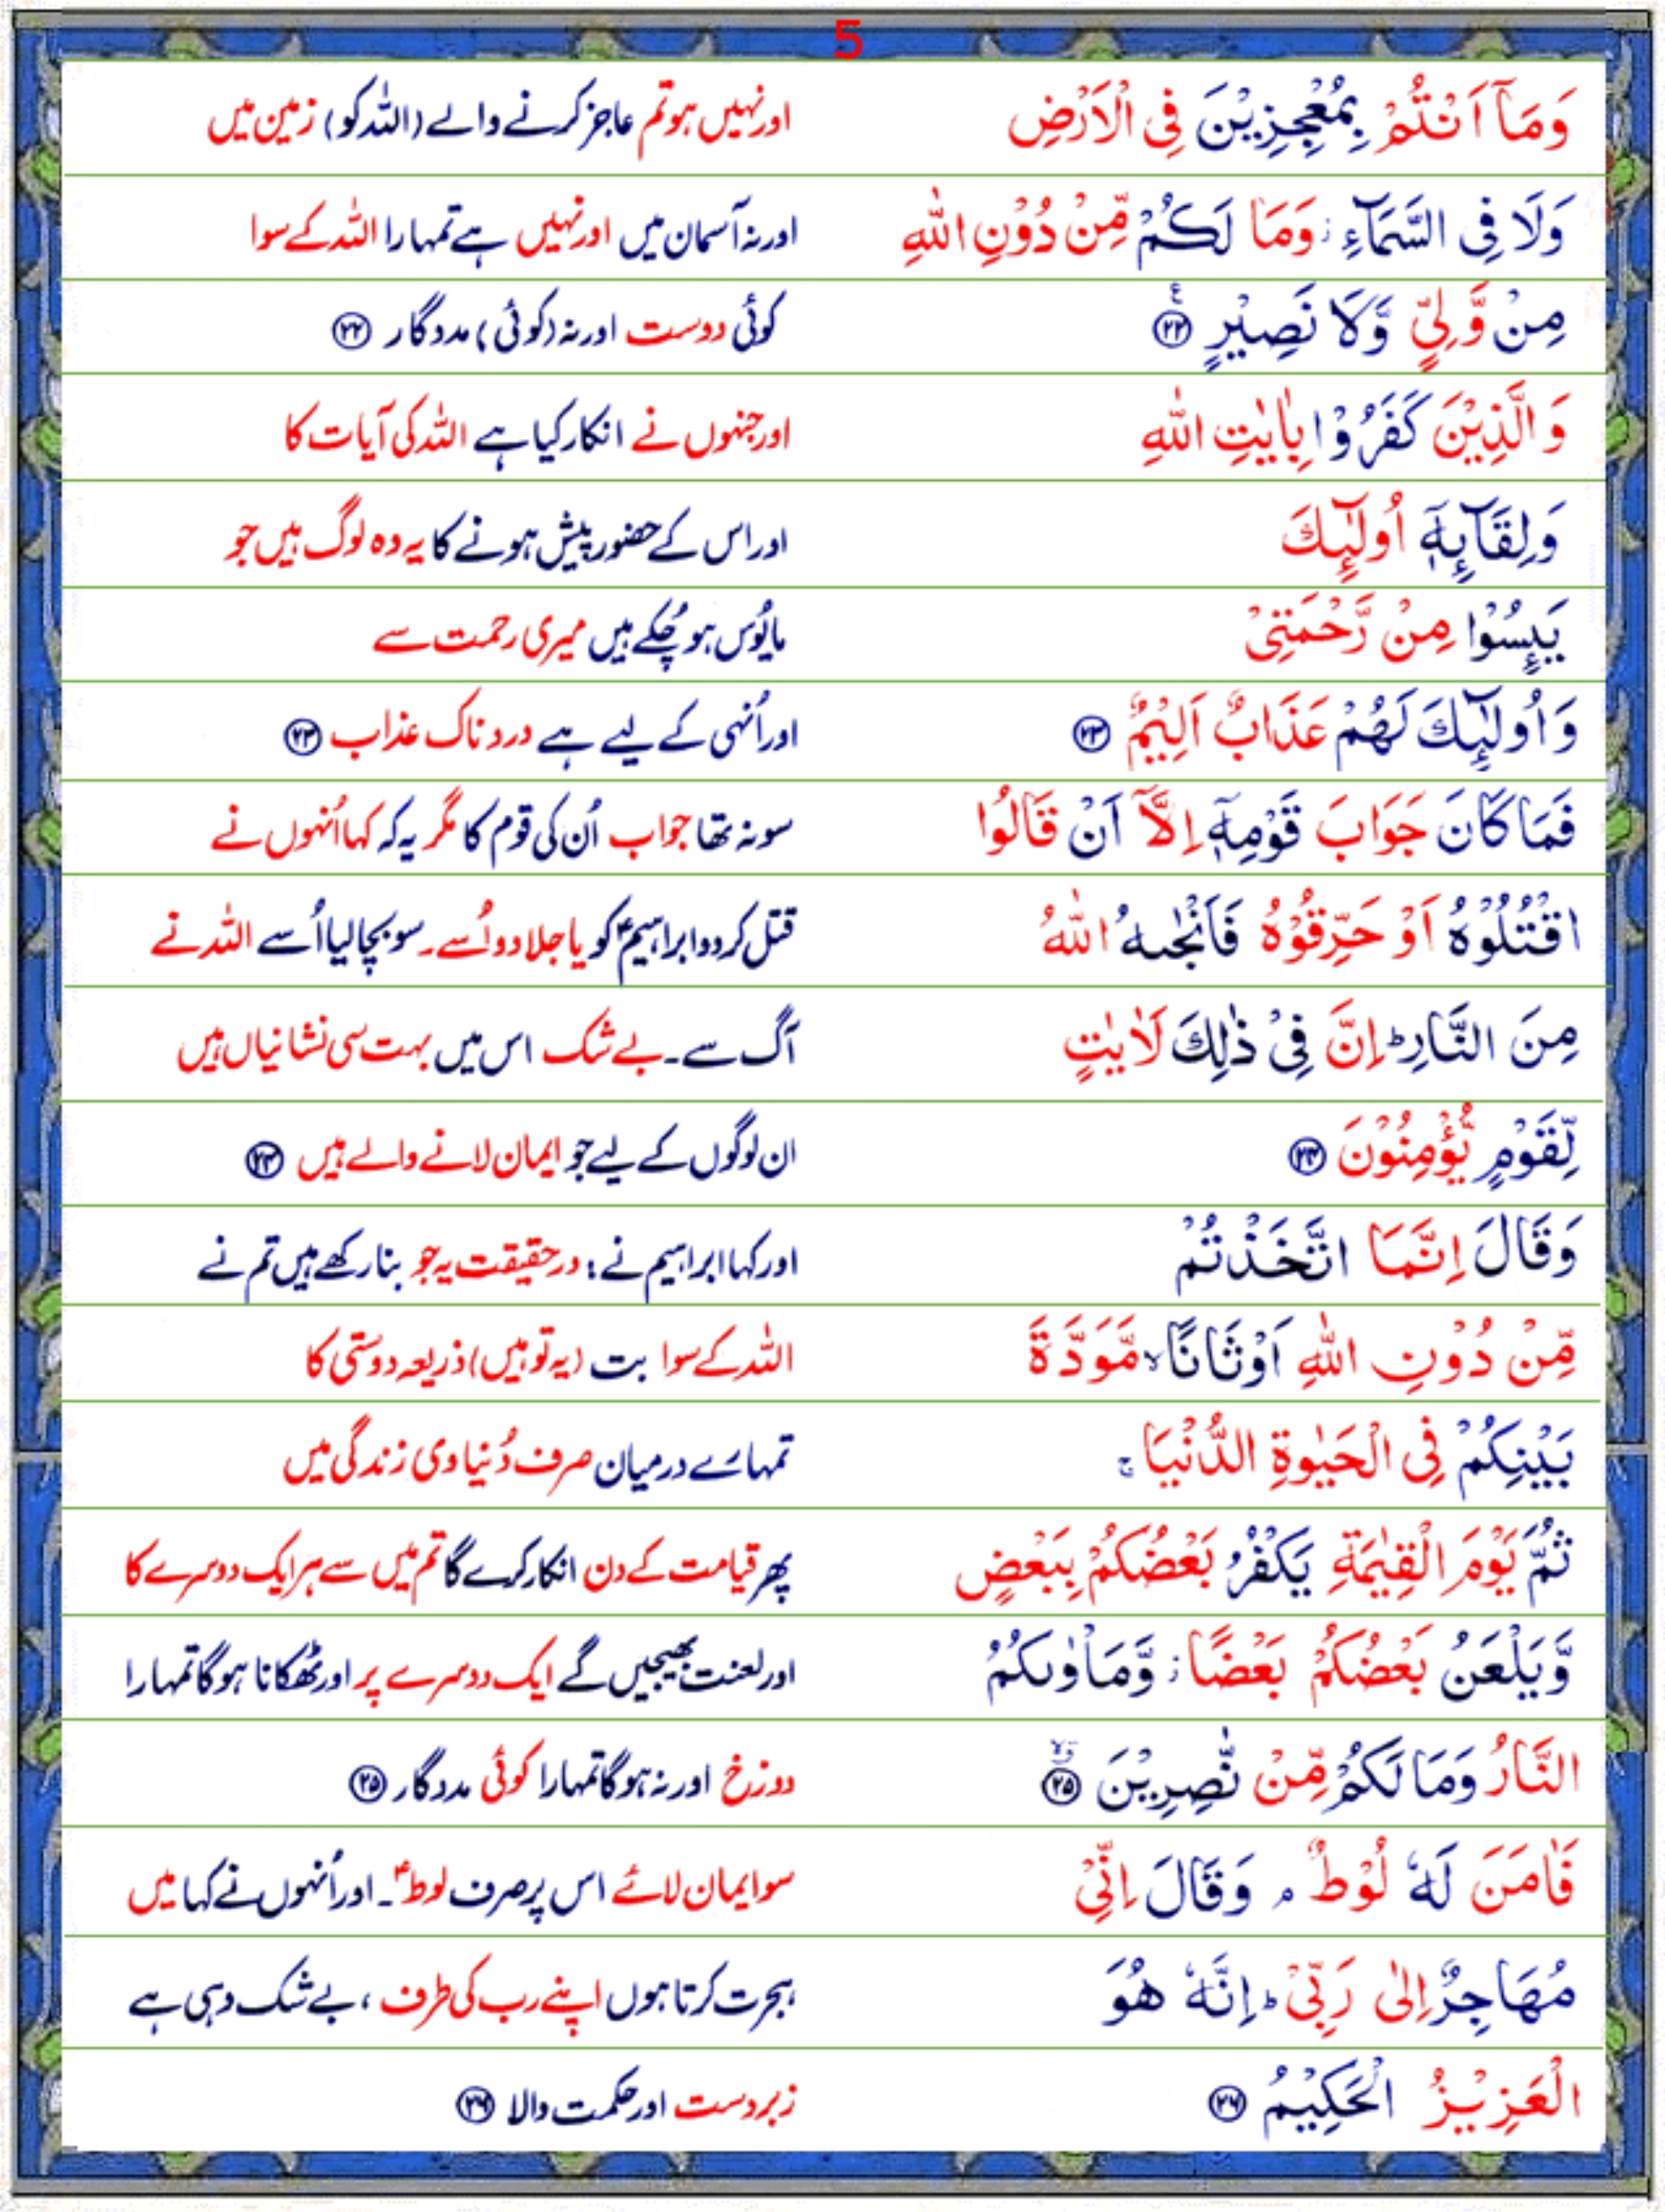 5
وَمَآ اَنْتُمْ بِمُعْجِزِيْنَ فِى الْاَرْضِ اور نہیں ہو تم عاجز کرنے والے (اللہ کو) زمین میں
وَلَا فِى السَّمَآءِ ؗ وَمَا لَكُمْ مِّنْ دُوْنِ اللّٰهِ اور نہ آسمان میں اور نہیں ہے تمہارا اللہ کے سوا
مِنْ وَّلِىٍّ وَّلَا نَصِيْرٍ ۲۲ کوئی دوست اور نہ (کوئی) مددگار ۲۲
وَالَّذِيْنَ كَفَرُوْا بِاٰيٰتِ اللّٰهِ اور جنہوں نے انکار کیا ہے اللہ کی آیات کا
وَلِقَآئِهٖٓ اُولٰٓئِكَ اور اس کے حضور پیش ہونے کا یہ وہ لوگ ہیں جو
يَئِسُوْا مِنْ رَّحْمَتِىْ مایُوس ہو چُکے ہیں میری رحمت سے
وَاُولٰٓئِكَ لَهُمْ عَذَابٌ اَلِيْمٌ ۲۳ اور اُنہی کے لیے ہے درد ناک عذاب ۲۳
فَمَا كَانَ جَوَابَ قَوْمِهٖٓ اِلَّآ اَنْ قَالُوا سو نہ تھا جواب اُن کی قوم کا مگر یہ کہ کہا اُنہوں نے
اقْتُلُوْهُ اَوْ حَرِّقُوْهُ فَاَنْجٰىهُ اللّٰهُ قتل کر دو ابراہیمؑ کو یا جلا دو اُسے۔ سو بچا لیا اُسے اللہ نے
مِنَ النَّارِ ؕ اِنَّ فِىْ ذٰلِكَ لَاٰيٰتٍ آگ سے۔ بے شک اس میں بہت سی نشانیاں ہیں
لِّقَوْمٍ يُّؤْمِنُوْنَ ۲۴ ان لوگوں کے لیے جو ایمان لانے والے ہیں ۲۴
وَقَالَ اِنَّمَا اتَّخَذْتُمْ اور کہا ابراہیم نے: درحقیقت یہ جو بنا رکھے ہیں تم نے
مِّنْ دُوْنِ اللّٰهِ اَوْثَانًا ۙ مَّوَدَّةَ اللہ کے سوا بت (یہ تو ہیں) ذریعہ دوستی کا
بَيْنِكُمْ فِى الْحَيٰوةِ الدُّنْيَا ۚ تمہارے درمیان صرف دُنیاوی زندگی میں
ثُمَّ يَوْمَ الْقِيٰمَةِ يَكْفُرُ بَعْضُكُمْ بِبَعْضٍ پھر قیامت کے دن انکار کرے گا تم میں سے ہر ایک دوسرے کا
وَّيَلْعَنُ بَعْضُكُمْ بَعْضًا ؗ وَّمَاْوٰىكُمُ اور لعنت بھیجیں گے ایک دوسرے پر اور ٹھکانا ہوگا تمہارا
النَّارُ وَمَا لَكُمْ مِّنْ نّٰصِرِيْنَ ۲۵ دوزخ اور نہ ہوگا تمہارا کوئی مددگار ۲۵
فَاٰمَنَ لَهٗ لُوْطٌ ۘ وَقَالَ اِنِّىْ سو ایمان لائے اس پر صرف لوطؑ۔ اور اُنہوں نے کہا میں
مُهَاجِرٌ اِلٰى رَبِّىْ ؕ اِنَّهٗ هُوَ ہجرت کرتا ہوں اپنے رب کی طرف، بے شک وہی ہے
الْعَزِيْزُ الْحَكِيْمُ ۲۶ زبردست اور حکمت والا ۲۶